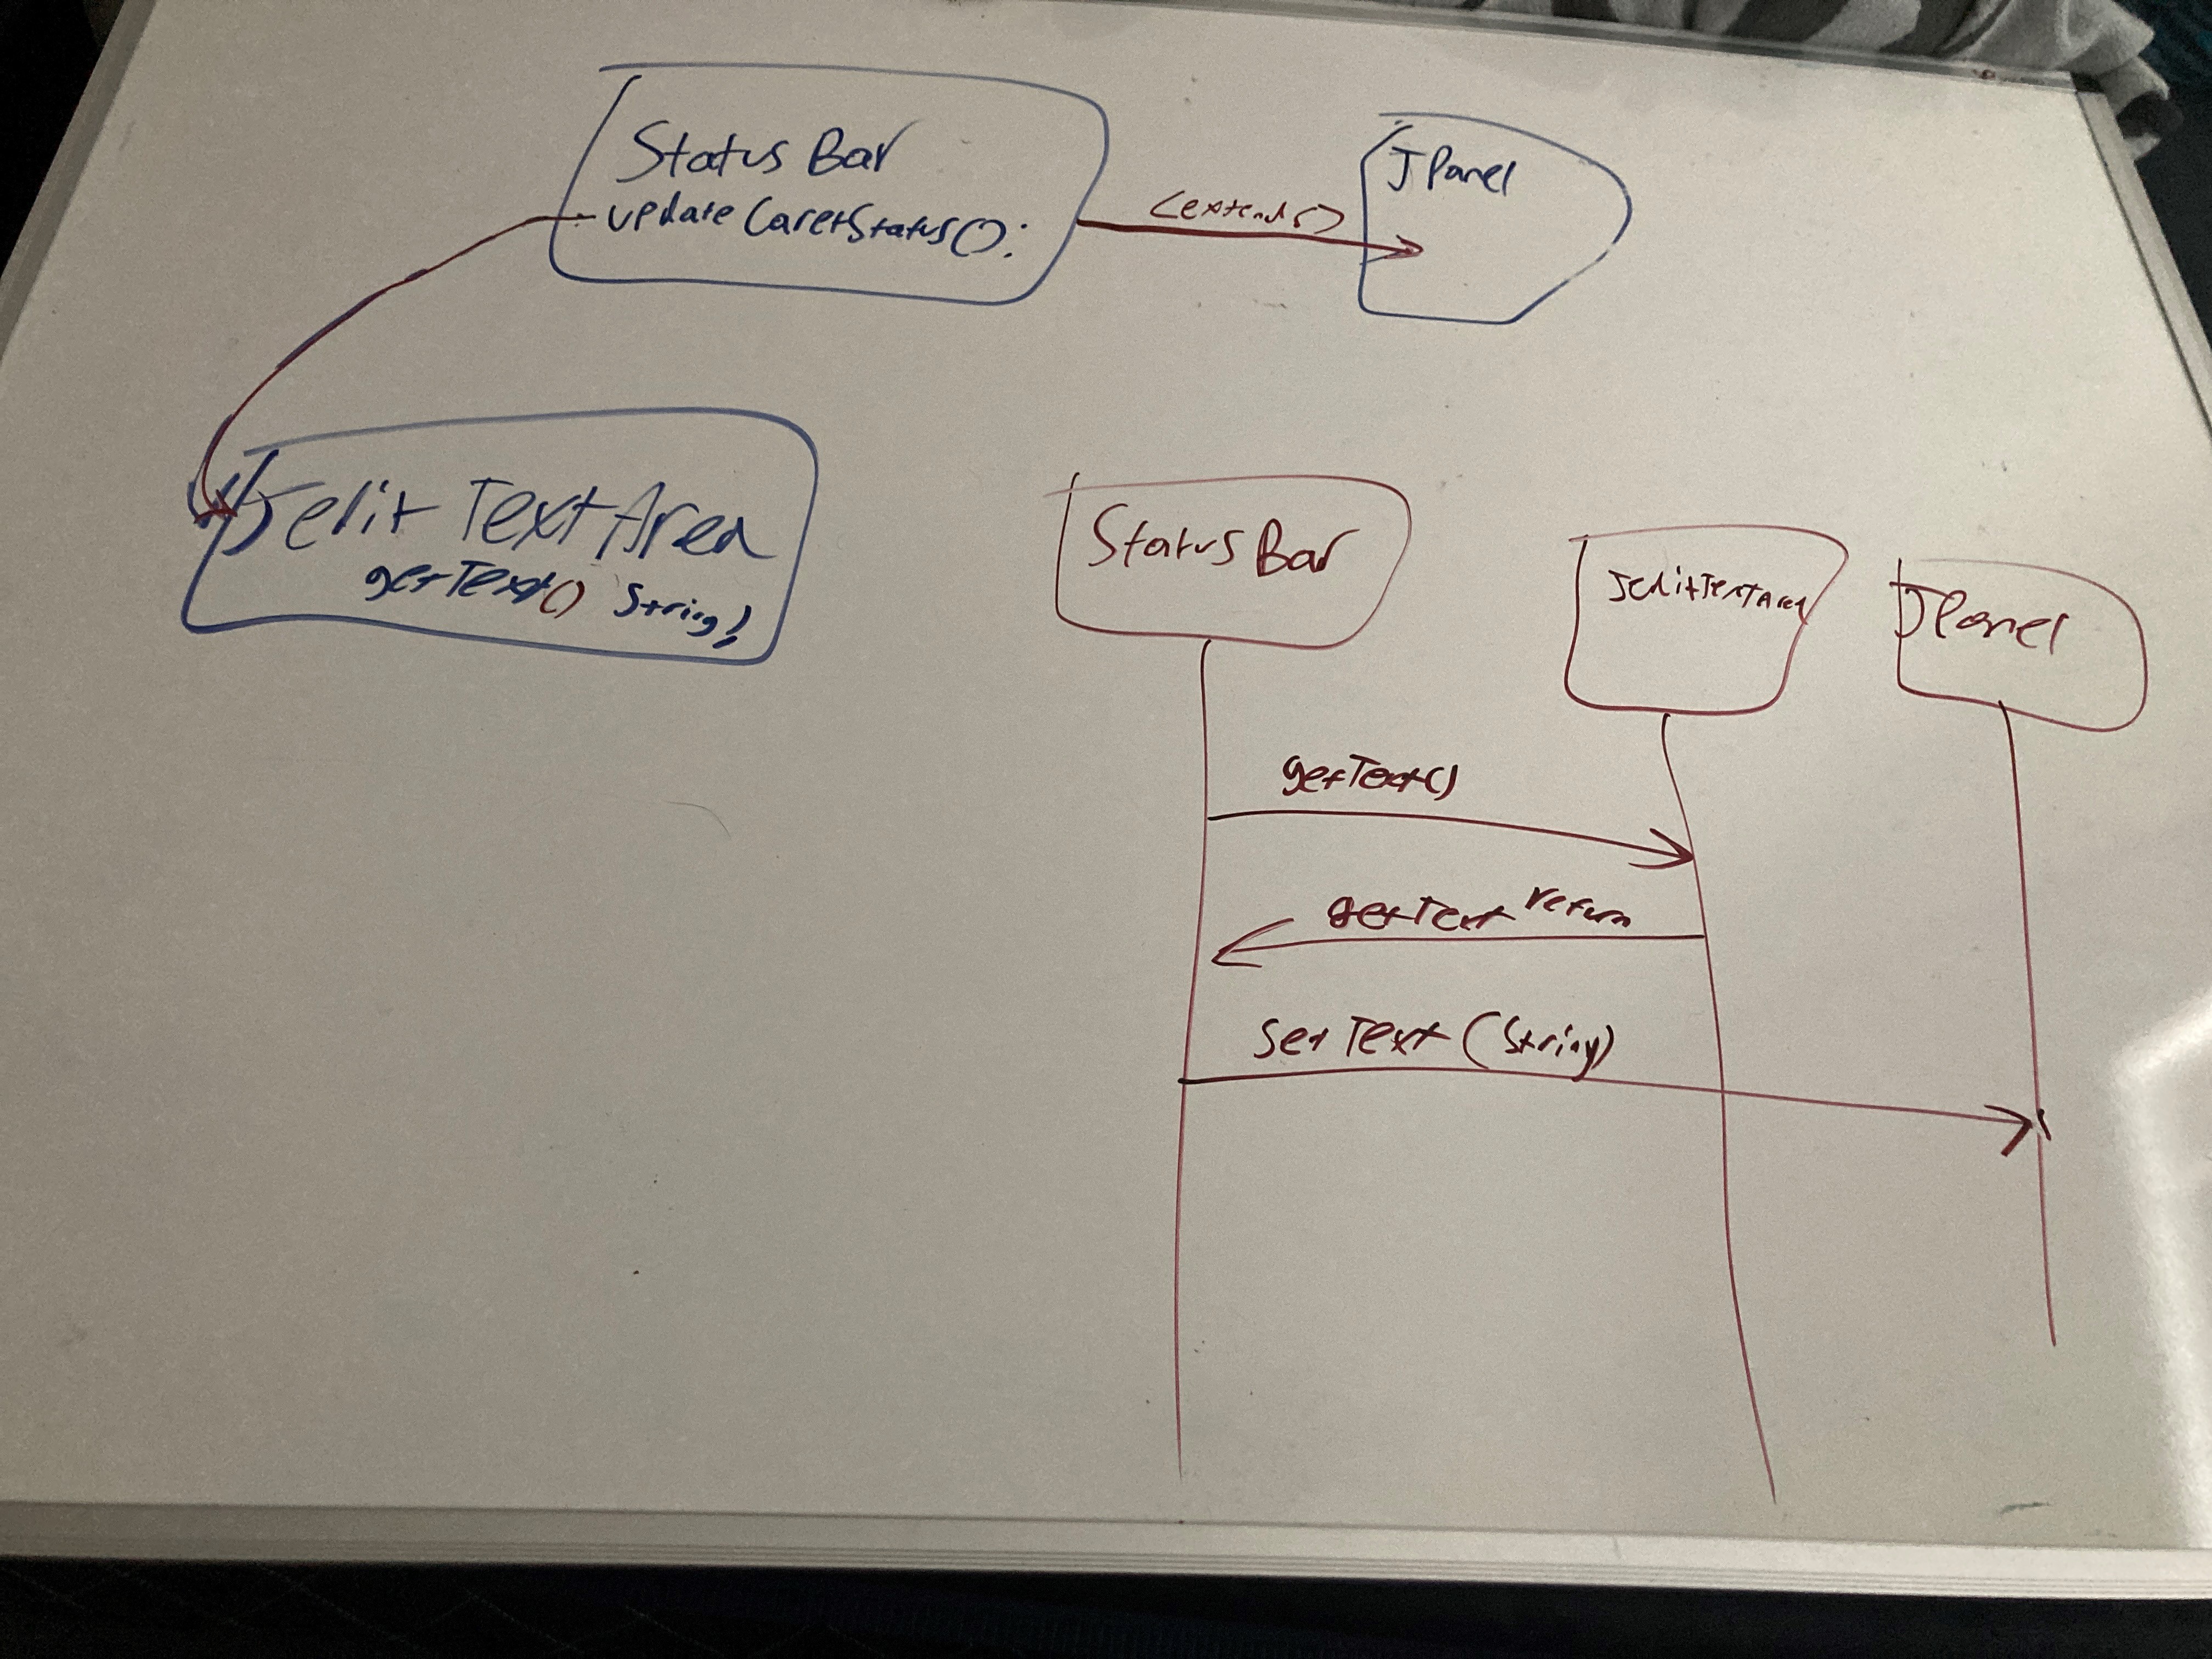 Status Bar
updateCaretStatus():
<extends>
JPanel
Jedit TextArea
getText() String;
Status Bar
JeditTextArea
JPanel
getText()
getText return
Set Text (String)